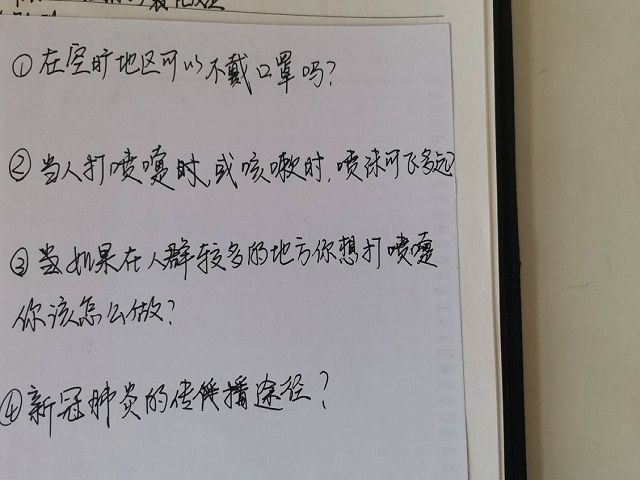 ①在空旷地区可以不戴口罩吗?
②当人打喷嚏时,或咳嗽时,喷沫可飞多远
③如果在人群较多的地方你想打喷嚏
你该怎么做?
④新冠肺炎的传播途径?